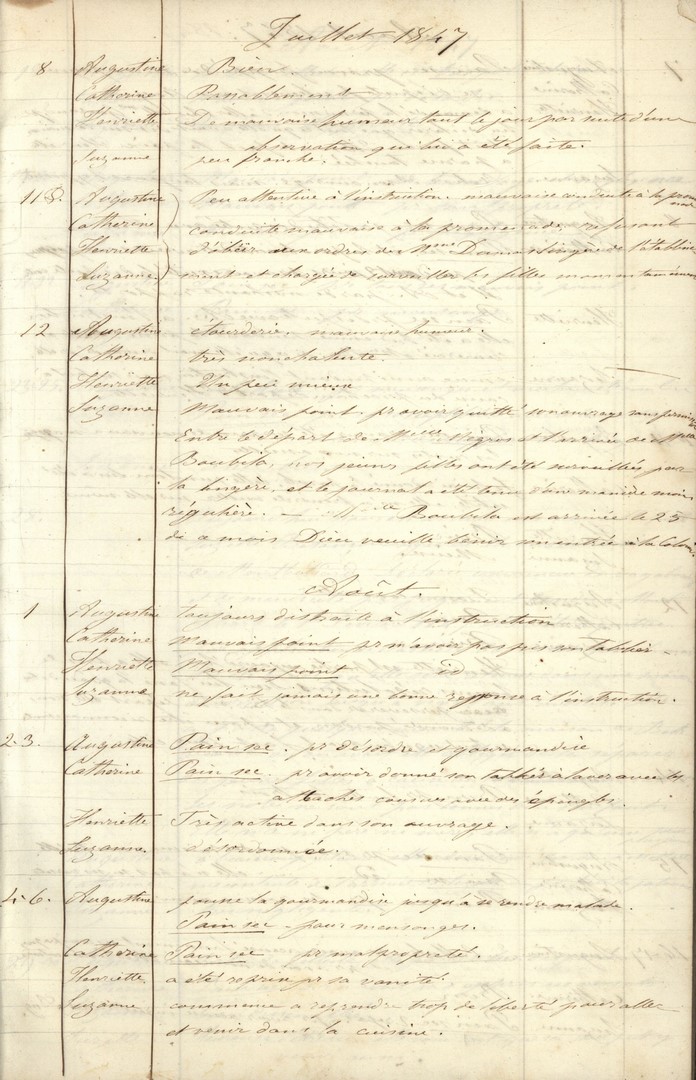 Juillet 1847
8 Augustine Bien.
Catherine Passablement
Henriette De mauvaise humeur tout le jour par suite d'une
observation qui lui a été faite.
Suzanne peu franche.
11 Augustine Peu attentive à l'instruction. mauvaise conduite à la
Catherine conduite mauvaise à la promenade, refusant
Henriette d'obéir aux ordres de Mme lingère de l'établisse
Suzanne ment et chargée de surveiller les filles momentanément
12 Augustine étourderie. mauvaise humeur.
Catherine très nonchalente.
Henriette Un peu mieux
Suzanne Mauvais point pr avoir quitté son ouvrage sans permis
Entre le départ de Mlle et l'arrivée de Mlle
Boubila, nos jeunes filles ont été surveillées par
la lingère, et le journal a été tenu d'une manière moins
régulière. — Mlle Boubila est arrivée le 25
de ce mois Dieu veuille bénir son entrée à la Colonie
Août.
1 Augustine toujours distraite à l'instruction
Catherine Mauvais point pr n'avoir pas pris son tablier
Henriette Mauvais point id
Suzanne ne fait jamais une bonne réponse à l'instruction.
2-3. Augustine Pain sec. pr désordre et gourmandise
Catherine Pain sec. pr avoir donné son tablier à laver avec les
attaches cousues avec des épingles.
Henriette Très active dans son ouvrage.
Suzanne. désordonnée.
4-6. Augustine pousse la gourmandise jusqu'à se rendre malade.
Pain sec pour mensonges.
Catherine Pain sec pr malpropreté.
Henriette a été reprise pr sa vanité
Suzanne commence à reprendre trop de liberté pour aller
et venir dans la cuisine.